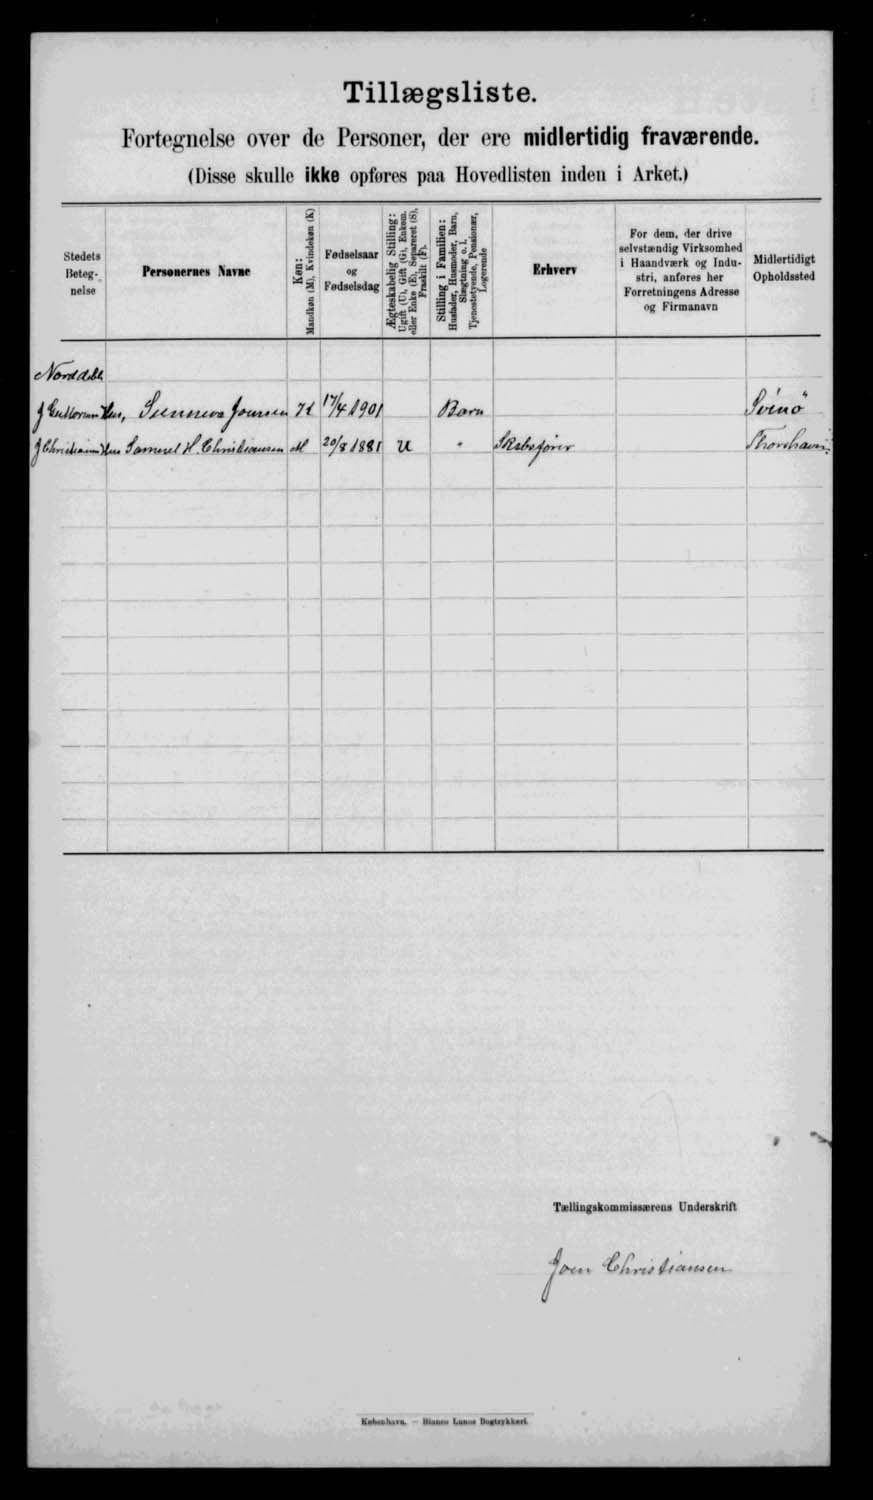 Tillægsliste.
Fortegnelse over de Personer, der ere midlertidig fraværende.
(Disse skulle ikke opføres paa Hovedlisten inden i Arket.)
Stedets Beteg-nelse
Personernes Navne
Køn: Mandkøn (M), Kvindekøn (K)
Fødselsaar og Fødselsdag
Ægteskabelig Stilling: Ugift (U), Gift (G), Enkem. eller Enke (E), Separeret (S), Fraskilt (F).
Stilling i Familien: Husfader, Husmoder, Barn, Slægtning o. l. Tjenestetyende, Pensionær, Logerende
Erhverv
For dem, der drive selvstændig Virksomhed i Haandværk og Indu-stri, anføres her Forretningens Adresse og Firmanavn
Midlertidigt Opholdssted
J Hus, Sunneva Joensen K 17/4 1901 Barn Svinø
J Christians Hus Samuel H. Christiansen M 20/8 1881 U " Thorshavn
Tællingskommissærens Underskrift
Joen Christiansen
København. — Bianco Lunos Bogtrykkeri.